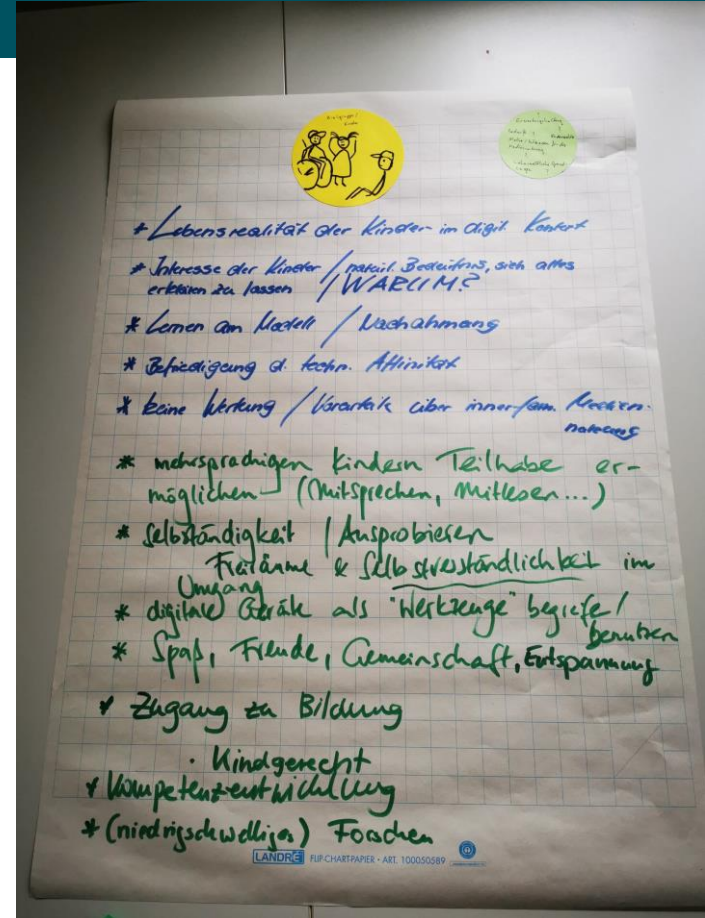 Zielgruppe/
Kinder
* Lebensrealität der Kinder im digit. Kontext
* Interesse der Kinder / natürl. Bedürfnis, sich alles
erklären zu lassen / WARUM?
* Lernen am Modell / Nachahmung
* Befriedigung d. techn. Affinität
* keine Wertung / Vorurteile über innerfam. Medien-
nutzung
* mehrsprachigen Kindern Teilhabe er-
möglichen (Mitsprechen, Mitlesen...)
* Selbständigkeit / Ausprobieren
Freiräume & Selbstverständlichkeit im
Umgang
* digitale Geräte als "Werkzeuge" begreife/
benutzen
* Spaß, Freude, Gemeinschaft, Entspannung
* Zugang zu Bildung
· Kindgerecht
* Kompetenzentwicklung
* (niedrigschwelliges) Forschen
LANDRÉ FLIP-CHART-PAPIER • ART. 100050589